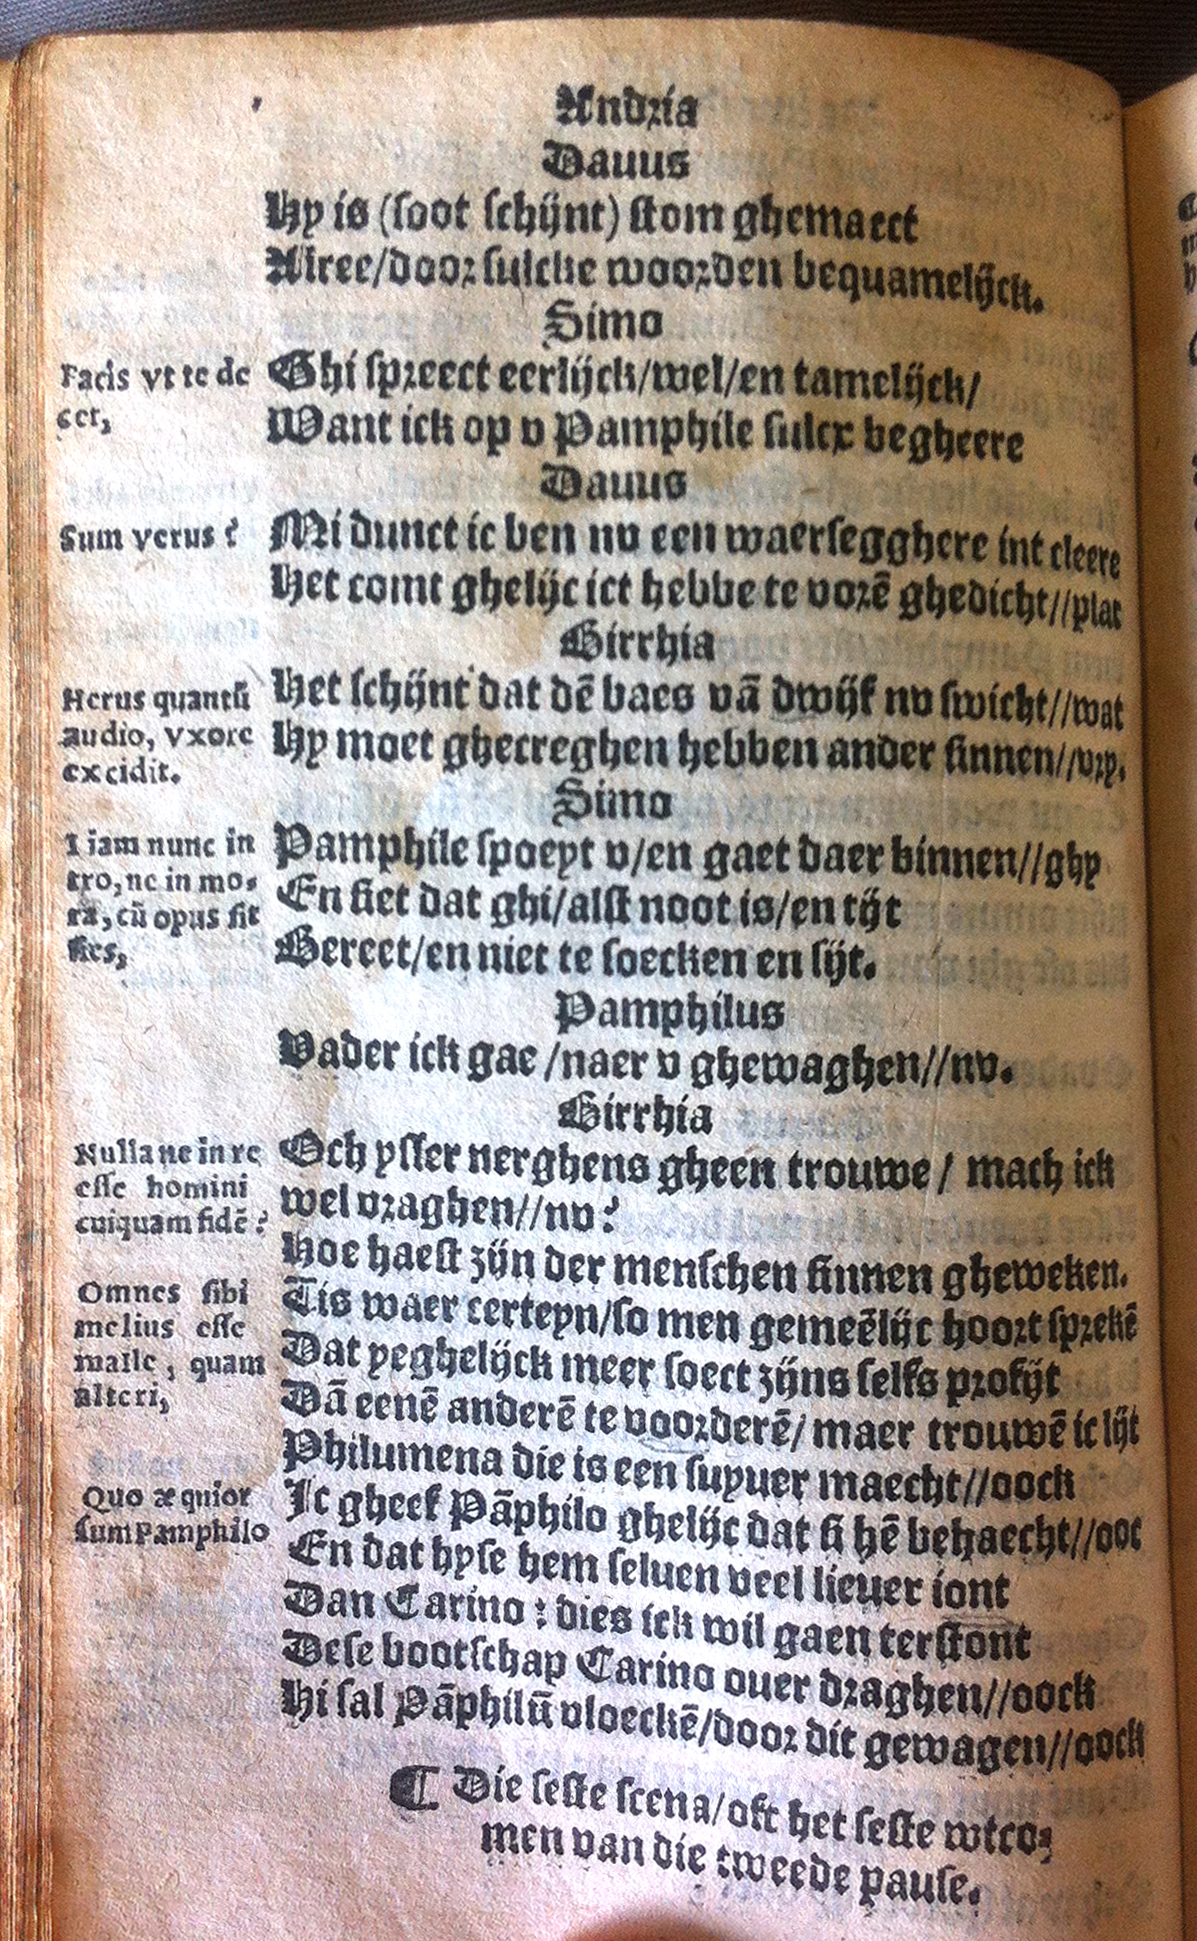 Andria
Dauus
Hy is (soot schijnt) stom ghemaect
Alree/door sulcke woorden bequamelijck.
Simo
Facis vt te de
cet,
Ghi spreect eerlijck/wel/en tamelijck/
Want ick op v Pamphile sulcx begheere
Dauus
Sum verus ?
Mi dunct ic ben nv een waersegghere int cleere
Het comt ghelijc ict hebbe te vorē ghedicht//plat
Birrhia
Herus quantū
audio, vxore
excidit.
Het schijnt dat dē baes vā dwijf nv swicht//wat
Hy moet ghecreghen hebben ander sinnen//vry.
Simo
I iam nunc in
tro, ne in mo-
ra, cū opus sit
sies,
Pamphile spoeyt v/en gaet daer binnen//ghy
En siet dat ghi/alst noot is/en tijt
Bereet/en niet te soecken en sijt.
Pamphilus
Vader ick gae /naer v ghewaghen//nv.
Birrhia
Nulla ne in re
esse homini
cuiquam fidē ?
Och ysser nerghens gheen trouwe / mach ick
wel vraghen//nv?
Hoe haest zijn der menschen sinnen gheweken.
Omnes sibi
melius esse
malle, quam
alteri,
Tis waer certeyn/so men gemeēlijc hoort sprekē
Dat yeghelijck meer soect zijns selfs profijt
Dā eenē anderē te voorderē/ maer trouwē ic lijt
Philumena die is een suyuer maecht//oock
Quo æquior
sum Pamphilo
Ic gheef Pāphilo ghelijc dat si hē behaecht//ooc
En dat hyse hem seluen veel lieuer iont
Dan Carino : dies ick wil gaen terstont
Dese bootschap Carino ouer draghen//oock
Hi sal Pāphilū vloeckē/door dit gewagen//oock
¶ Die seste scena/oft het seste wtco-
men van die tweede pause.